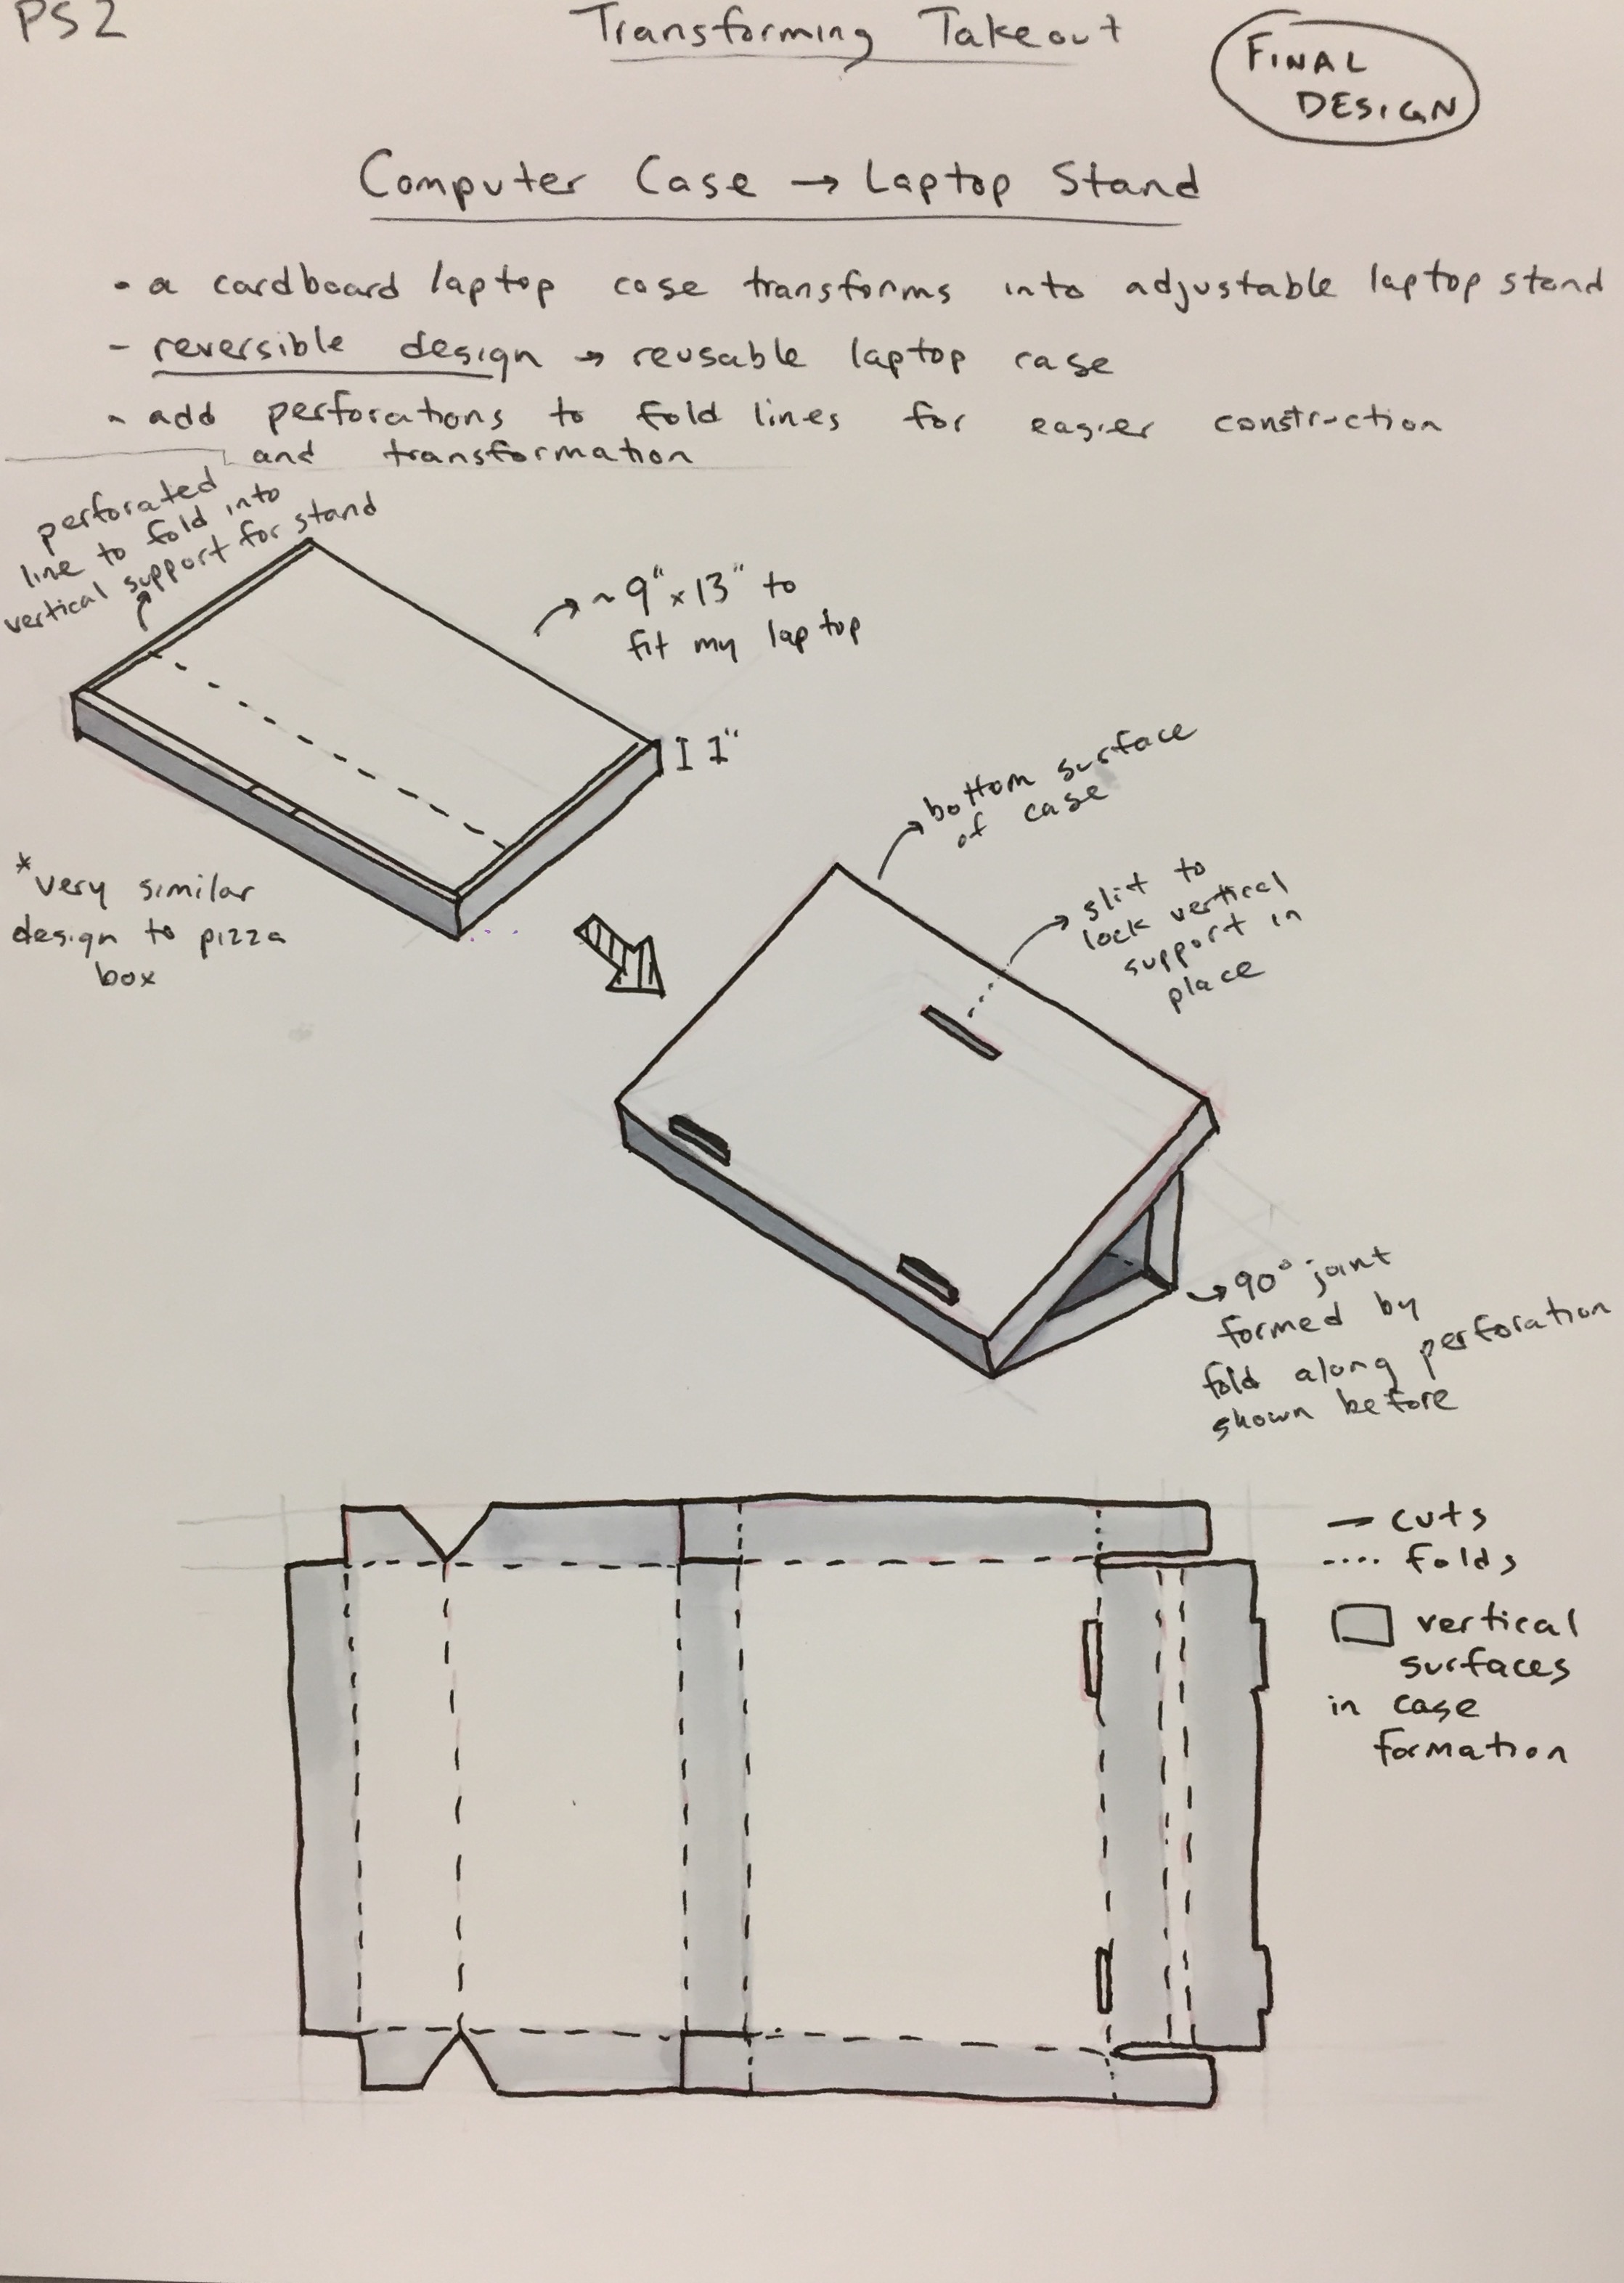 PS2
Transforming Takeout
FINAL
DESIGN
Computer Case → Laptop Stand
• a cardboard laptop case transforms into adjustable laptop stand
- reversible design → reusable laptop case
- add perforations to fold lines for easier construction
and transformation
perforated
line to fold into
vertical support for stand
~ 9" x 13" to
fit my laptop
1"
*very similar
design to pizza
box
bottom surface
of case
slit to
lock vertical
support in
place
90° joint
formed by
fold along perforation
shown before
— cuts
.... folds
vertical
surfaces
in case
formation